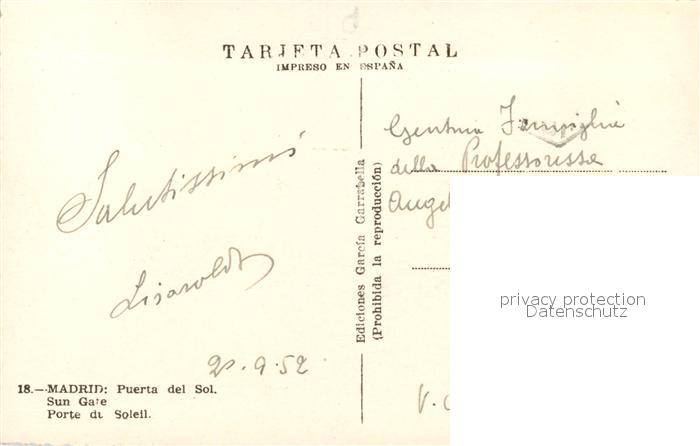 TARJETA POSTAL
IMPRESO EN ESPAÑA
Salutissimi
20.9.52
18.—MADRID: Puerta del Sol.
Sun Gate
Porte du Soleil.
Ediciones García Garrabella
(Prohibida la reproducción)
Gentma Famiglia
della Professoressa
Angel
privacy protection
Datenschutz
V.